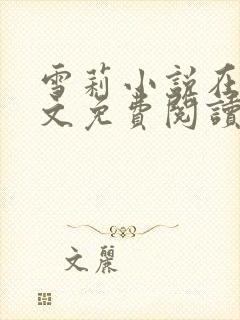 雪莉小說在
文免費閱讀
文麗